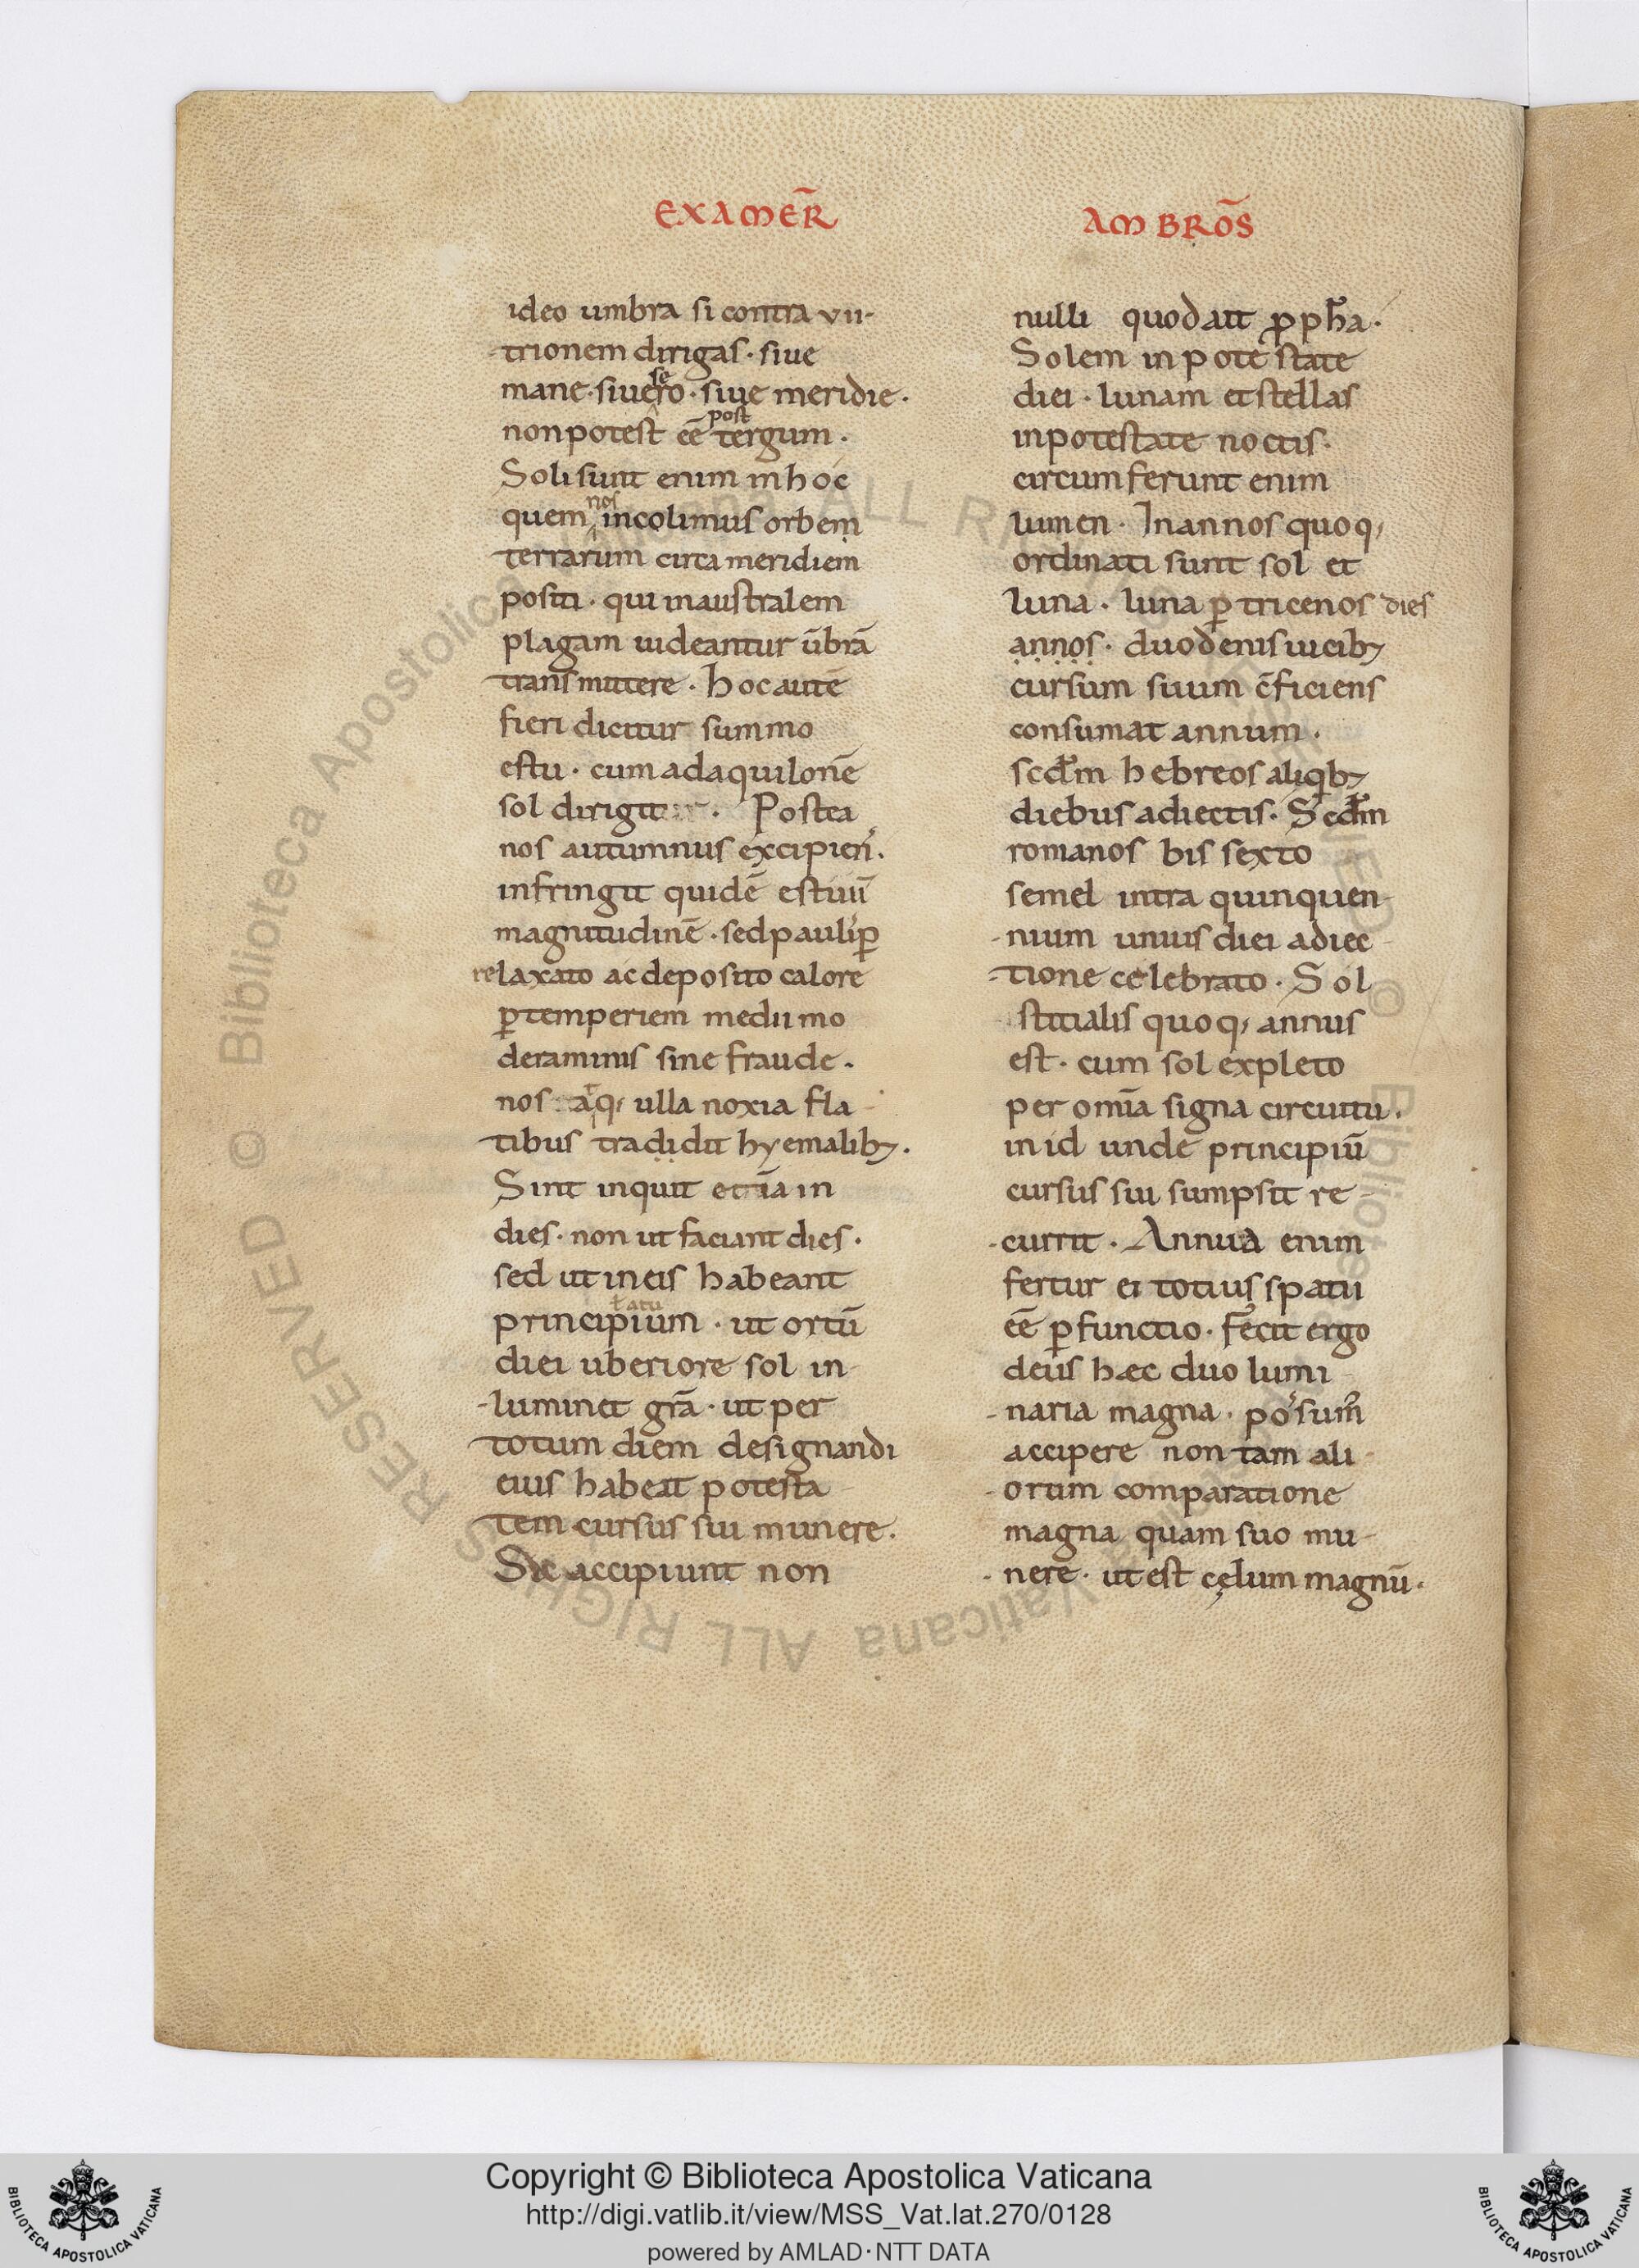 EXAMER̄
AMBRŌS
ideo umbra si contra vii-
-trionem dirigas· siue
mane· siue sero· siue meridie·
non potest eē post tergum·
Soli sunt enim in hoc
quem nos incolimus orbem
terrarum circa meridiem
positi· qui in australem
plagam uideantur ūbrā
transmittere· hoc autē
fieri dicitur summo
estu· cum ad aquilonē
sol dirigit· Postea
nos autumnus excipien̄·
infringit quidē estiuū
magnitudinē· sed paulip̄
relaxato ac deposito calore
p̱ temperiem medii mo
deraminis sine fraude·
nos atq; ulla noxia fla-
-tibus tradidit hyemalib;·
Sint inquit etiā in
dies· non ut faciant dies·
sed ut in eis habeant
principium· ut ortū
diei uberiore sol in-
-luminet grā· ut per
totum diem designandi
eius habeat potesta-
tem cursus sui munere·
Sic accipiunt non
nulli quod ait ppha·
Solem in potestate
diei· lunam et stellas
in potestate noctis·
circumferunt enim
lumen· In annos quoq;
ordinati sunt sol et
luna· luna p̱ tricenos dies
annos· duodenis uicib;
cursum suum c̄ficiens
consumat annum·
scdm hebreos aliqib;
diebus adiectis· Scdm
romanos bis sexto
semel intra quinquen-
-nium unius diei adiec-
-tione celebrato· Sol
stitialis quoq; annus
est· cum sol expleto
per omīa signa circuitu·
in id unde principiū
cursus sui sumpsit re-
-currit· Annua enim
fertur ei totius spatii
eē p̱functio· Fecit ergo
deus haec duo lumi
-naria magna· possum
accipere non tam ali-
-orum comparatione
magna quam suo mu-
-nere· ut est cęlum magnū·
© Biblioteca Apostolica Vaticana ALL RIGHTS RESERVED
Copyright © Biblioteca Apostolica Vaticana
http://digi.vatlib.it/view/MSS_Vat.lat.270/0128
powered by AMLAD·NTT DATA
BIBLIOTECA APOSTOLICA VATICANA
BIBLIOTECA APOSTOLICA VATICANA